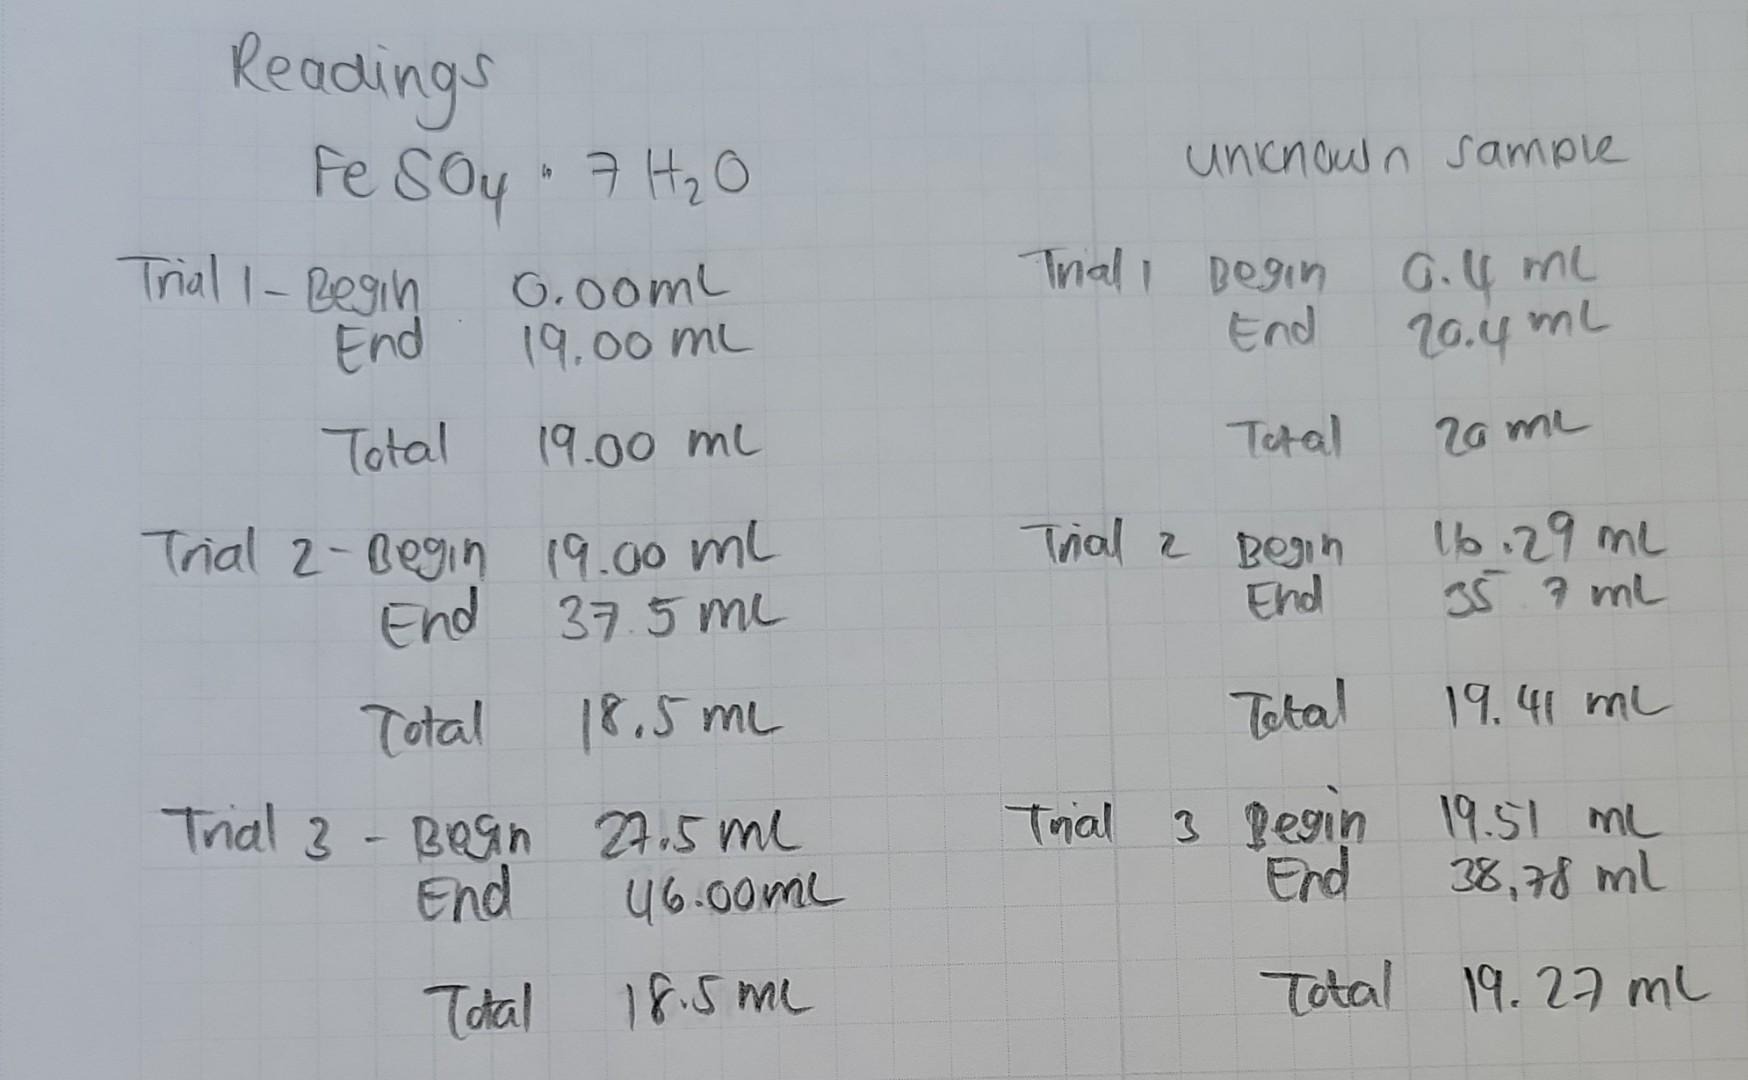 Readings
FeSO4 · 7 H2O
Trial 1 - Begin 0.00 mL
End 19.00 mL
Total 19.00 mL
Trial 2 - Begin 19.00 mL
End 37.5 mL
Total 18.5 mL
Trial 3 - Begin 27.5 mL
End 46.00 mL
Total 18.5 mL
unknown sample
Trial 1 Begin 0.4 mL
End 20.4 mL
Total 20 mL
Trial 2 Begin 16.29 mL
End 35.7 mL
Total 19.41 mL
Trial 3 Begin 19.51 mL
End 38,78 mL
Total 19.27 mL